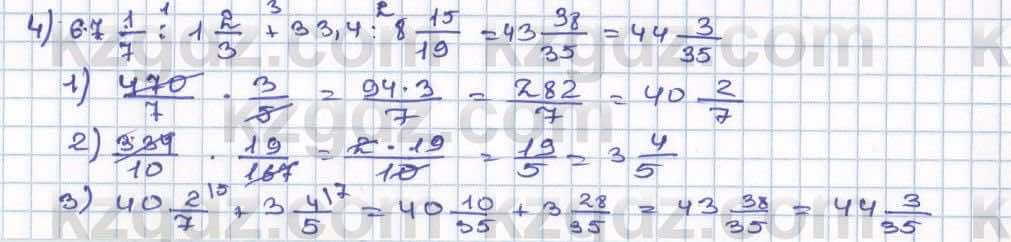 4) 67 1/7 : 1 2/3 + 33,4 : 8 15/19 = 43 38/35 = 44 3/35
1) 470/7 · 3/5 = 94·3/7 = 282/7 = 40 2/7
2) 334/10 · 19/167 = 2·19/10 = 19/5 = 3 4/5
3) 40 2/7 + 3 4/5 = 40 10/35 + 3 28/35 = 43 38/35 = 44 3/35
kzgdz.com